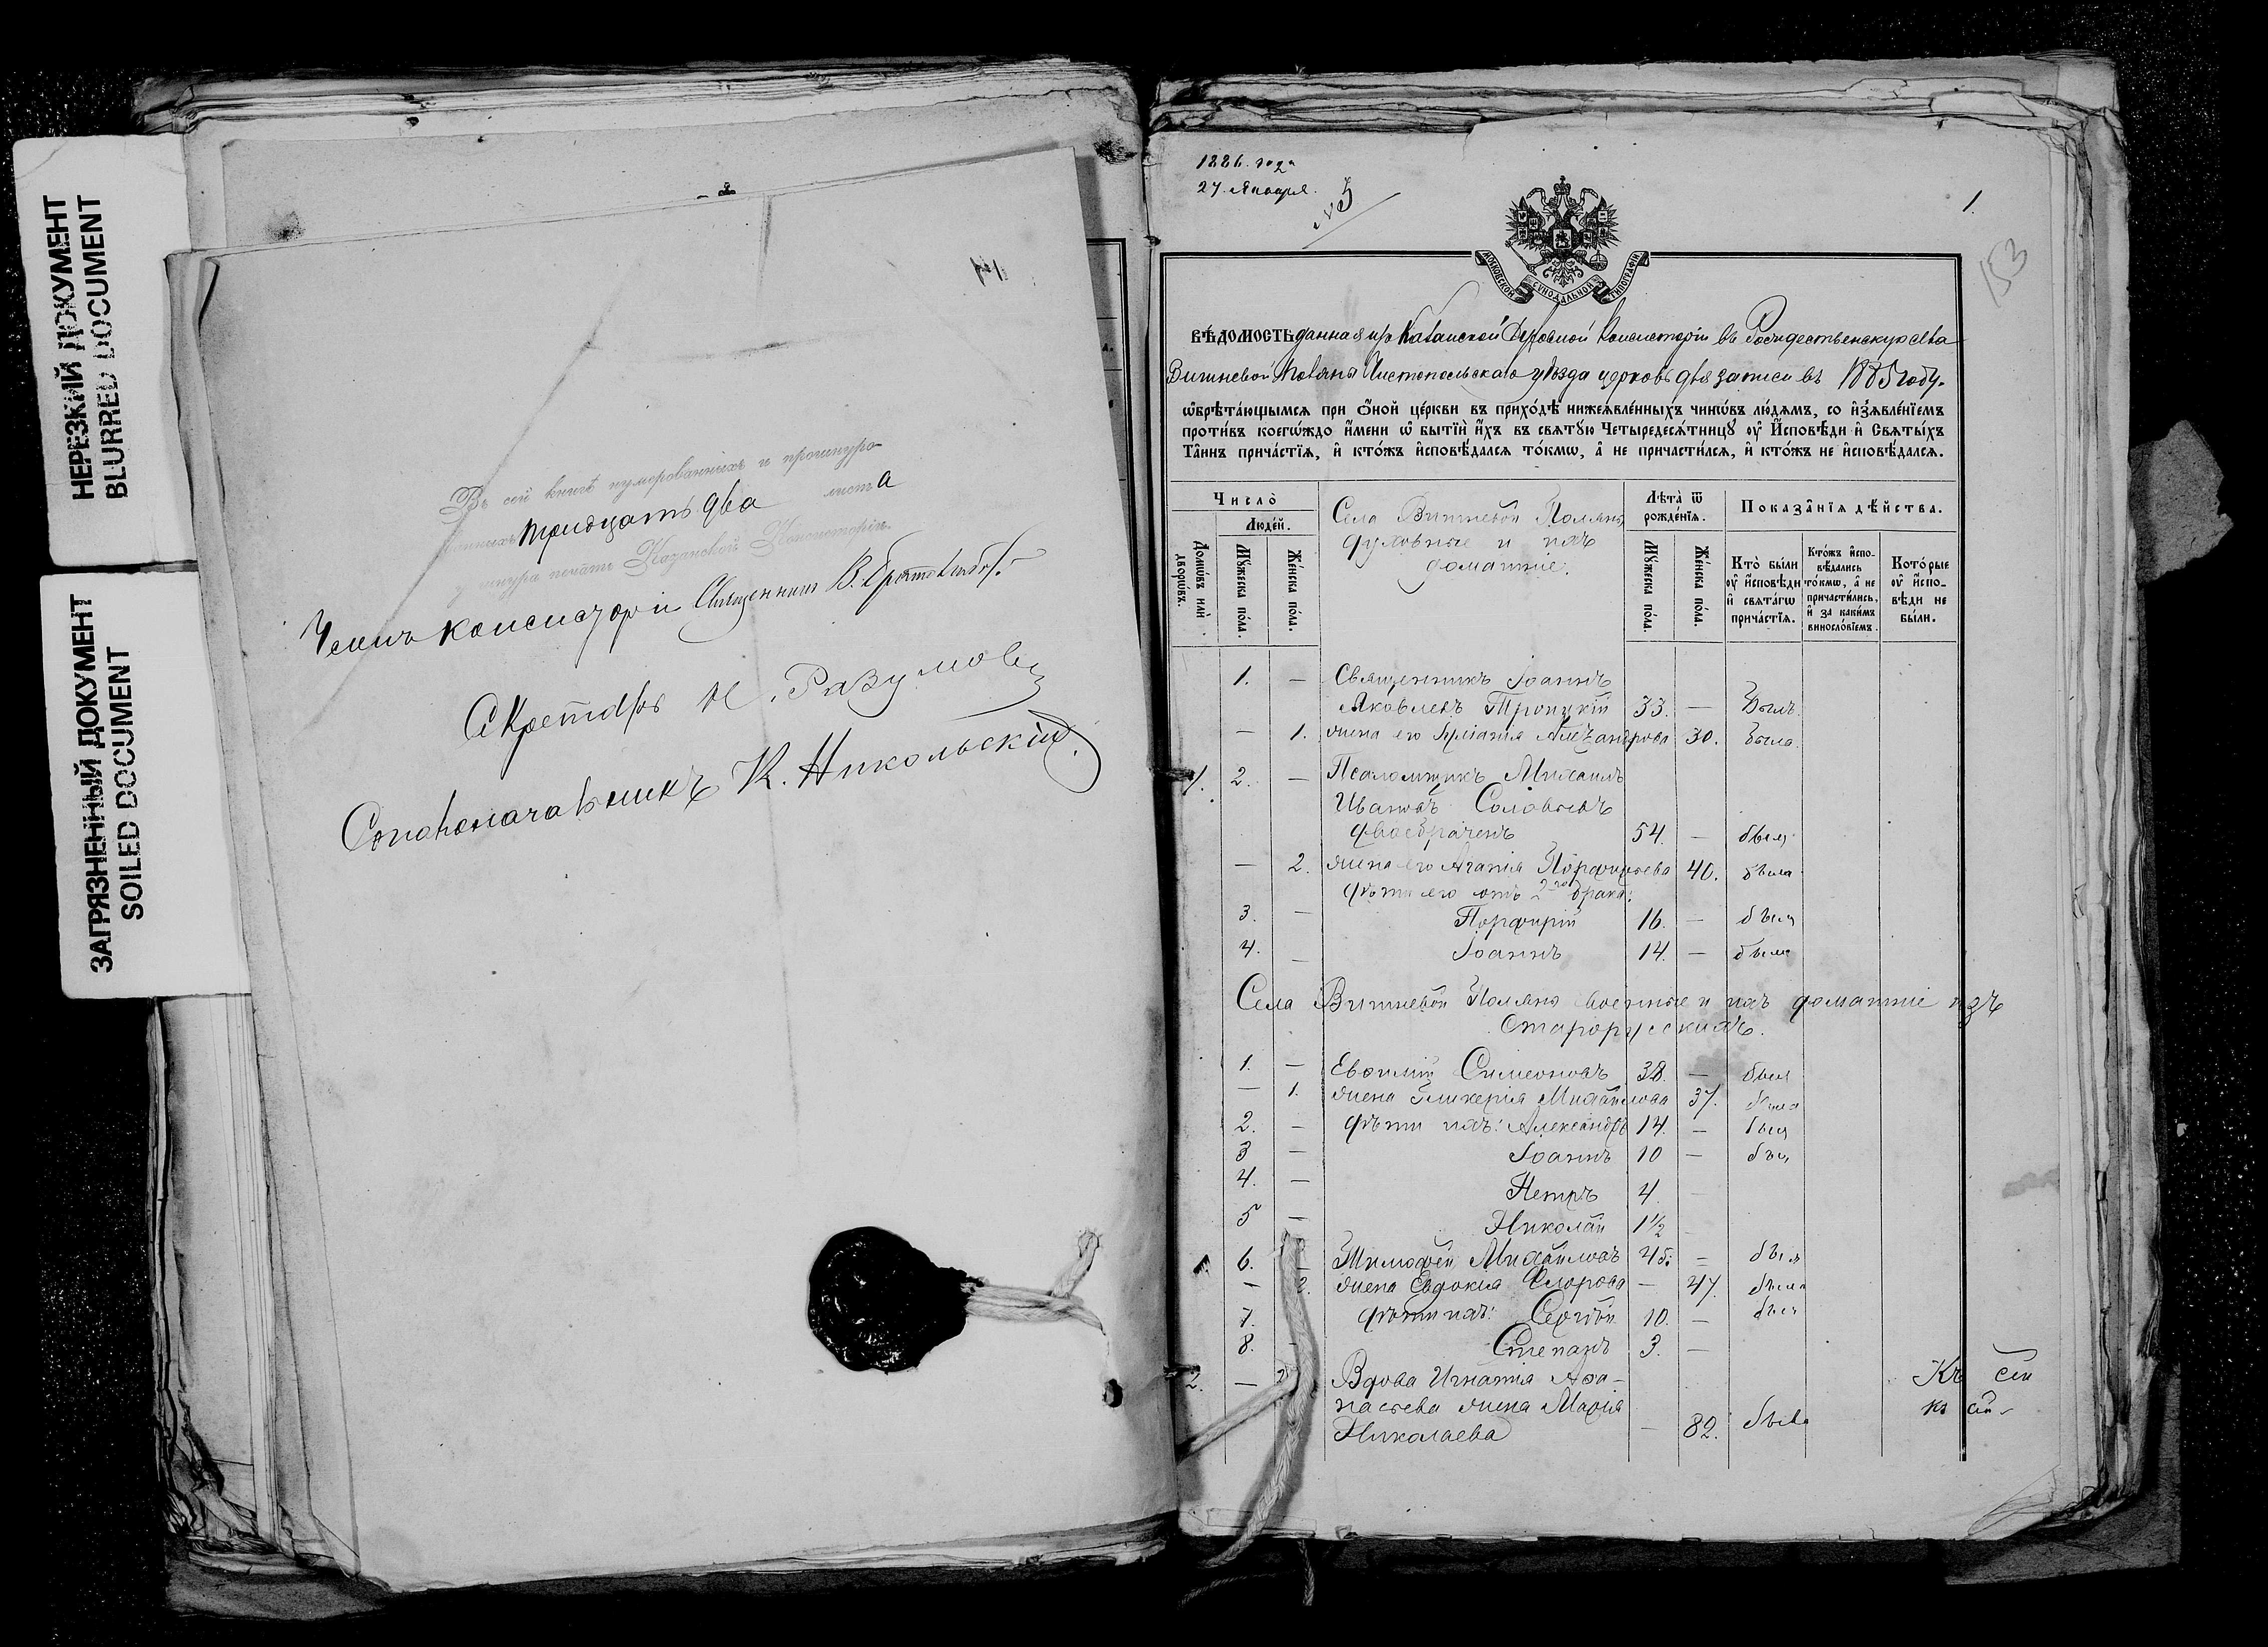 НЕРЕЗКИЙ ДОКУМЕНТ
BLURRED DOCUMENT
ЗАГРЯЗНЕННЫЙ ДОКУМЕНТ
SOILED DOCUMENT
Въ сей книгѣ нумерованныхъ и прошнуро-
ванныхъ тридцать два листа
шнура печать Казанской Консисторіи.
Членъ консисторіи Священникъ В.
Секретарь Н. Разумовъ
Столоначальникъ К. Никольскій.
1886. года
27. Января.
№ 5
1.
153
МОСКОВСКОЙ СѴНОДАЛЬНОЙ ТИПОГРАФІИ
ВѢДОМОСТЬ данная изъ Казанской Духовной Консисторіи въ Рождественскую села
Вишневой Поляны Чистопольскаго уѣзда церковь для записи въ 1885 году.
ѡ҆брѣта́ющымсѧ при О҆́ной це́ркви въ прихо́дѣ нижеѧвле́нныхъ чинѡ́въ лю́дѧмъ, со и҆з̾ѧвле́нїемъ
проти́въ коегѡ́ждо и҆́мени ѡ҆ бытїѝ и҆́хъ въ свѧту́ю Четыредесѧ́тницꙋ ᲂу҆ И҆сповѣ́ди и҆ Свѧты́хъ
Та̑инъ прича́стїѧ, и҆ кто́жъ и҆сповѣ́далсѧ то́кмѡ, а҆ не причасти́лсѧ, и҆ кто́жъ не и҆сповѣ́далсѧ.
Число̀
Люде́й.
Домѡ́въ илѝ дворѡ́въ.
Мꙋ́жеска по́ла.
Же́нска по́ла.
Села Вишневой Поляны
духовные и ихъ
домашніе.
Лѣ́та ѿ рожде́нїѧ.
Мꙋ́жеска по́ла.
Же́нска по́ла.
Показа̑нїѧ дѣ́йства.
Кто̀ бы́ли ᲂу҆ и҆сповѣ́ди и҆ свѧта́гѡ прича́стїѧ.
Кто́жъ и҆спо- вѣ́дались то́кмѡ, а҆ не причасти́лись, и҆ за каки́мъ виносло́вїемъ.
Кото́рые ᲂу҆ и҆спо- вѣ́ди не бы́ли.
1. — Священникъ Іоаннъ
Яковлевъ Троицкій 33. — Былъ.
— 1. жена его Александрова 30. была.
1. 2. — Псаломщикъ Михаилъ
Ивановъ Соловьевъ
двоебраченъ 54. — былъ
— 2. жена его Агапія Порфирьева 40. была
дѣти его отъ 2го брака:
3. — Порфирій 16. — былъ
4. — Іоаннъ 14. — былъ
Села Вишневой Поляны военные и ихъ домашніе изъ
старорусскихъ.
1. — Евѳимій Симеоновъ 38. — былъ
— 1. жена Гликерія Михайлова 37. была
2. — дѣти ихъ: Александръ 14. — былъ
3 — Іоаннъ 10 — былъ
4. — Петръ 4. —
5 — Николай 1½ —
6. — Тимофей Михайловъ 45. — былъ
— 2. жена Евдокія Флорова — 47. была
7. дѣти ихъ: Сергѣй 10. — былъ
8. — Степанъ 3. —
2. — Вдова Игнатія Аѳа-
насьева жена Марія
Николаева — 82. была
Къ сей
къ сей